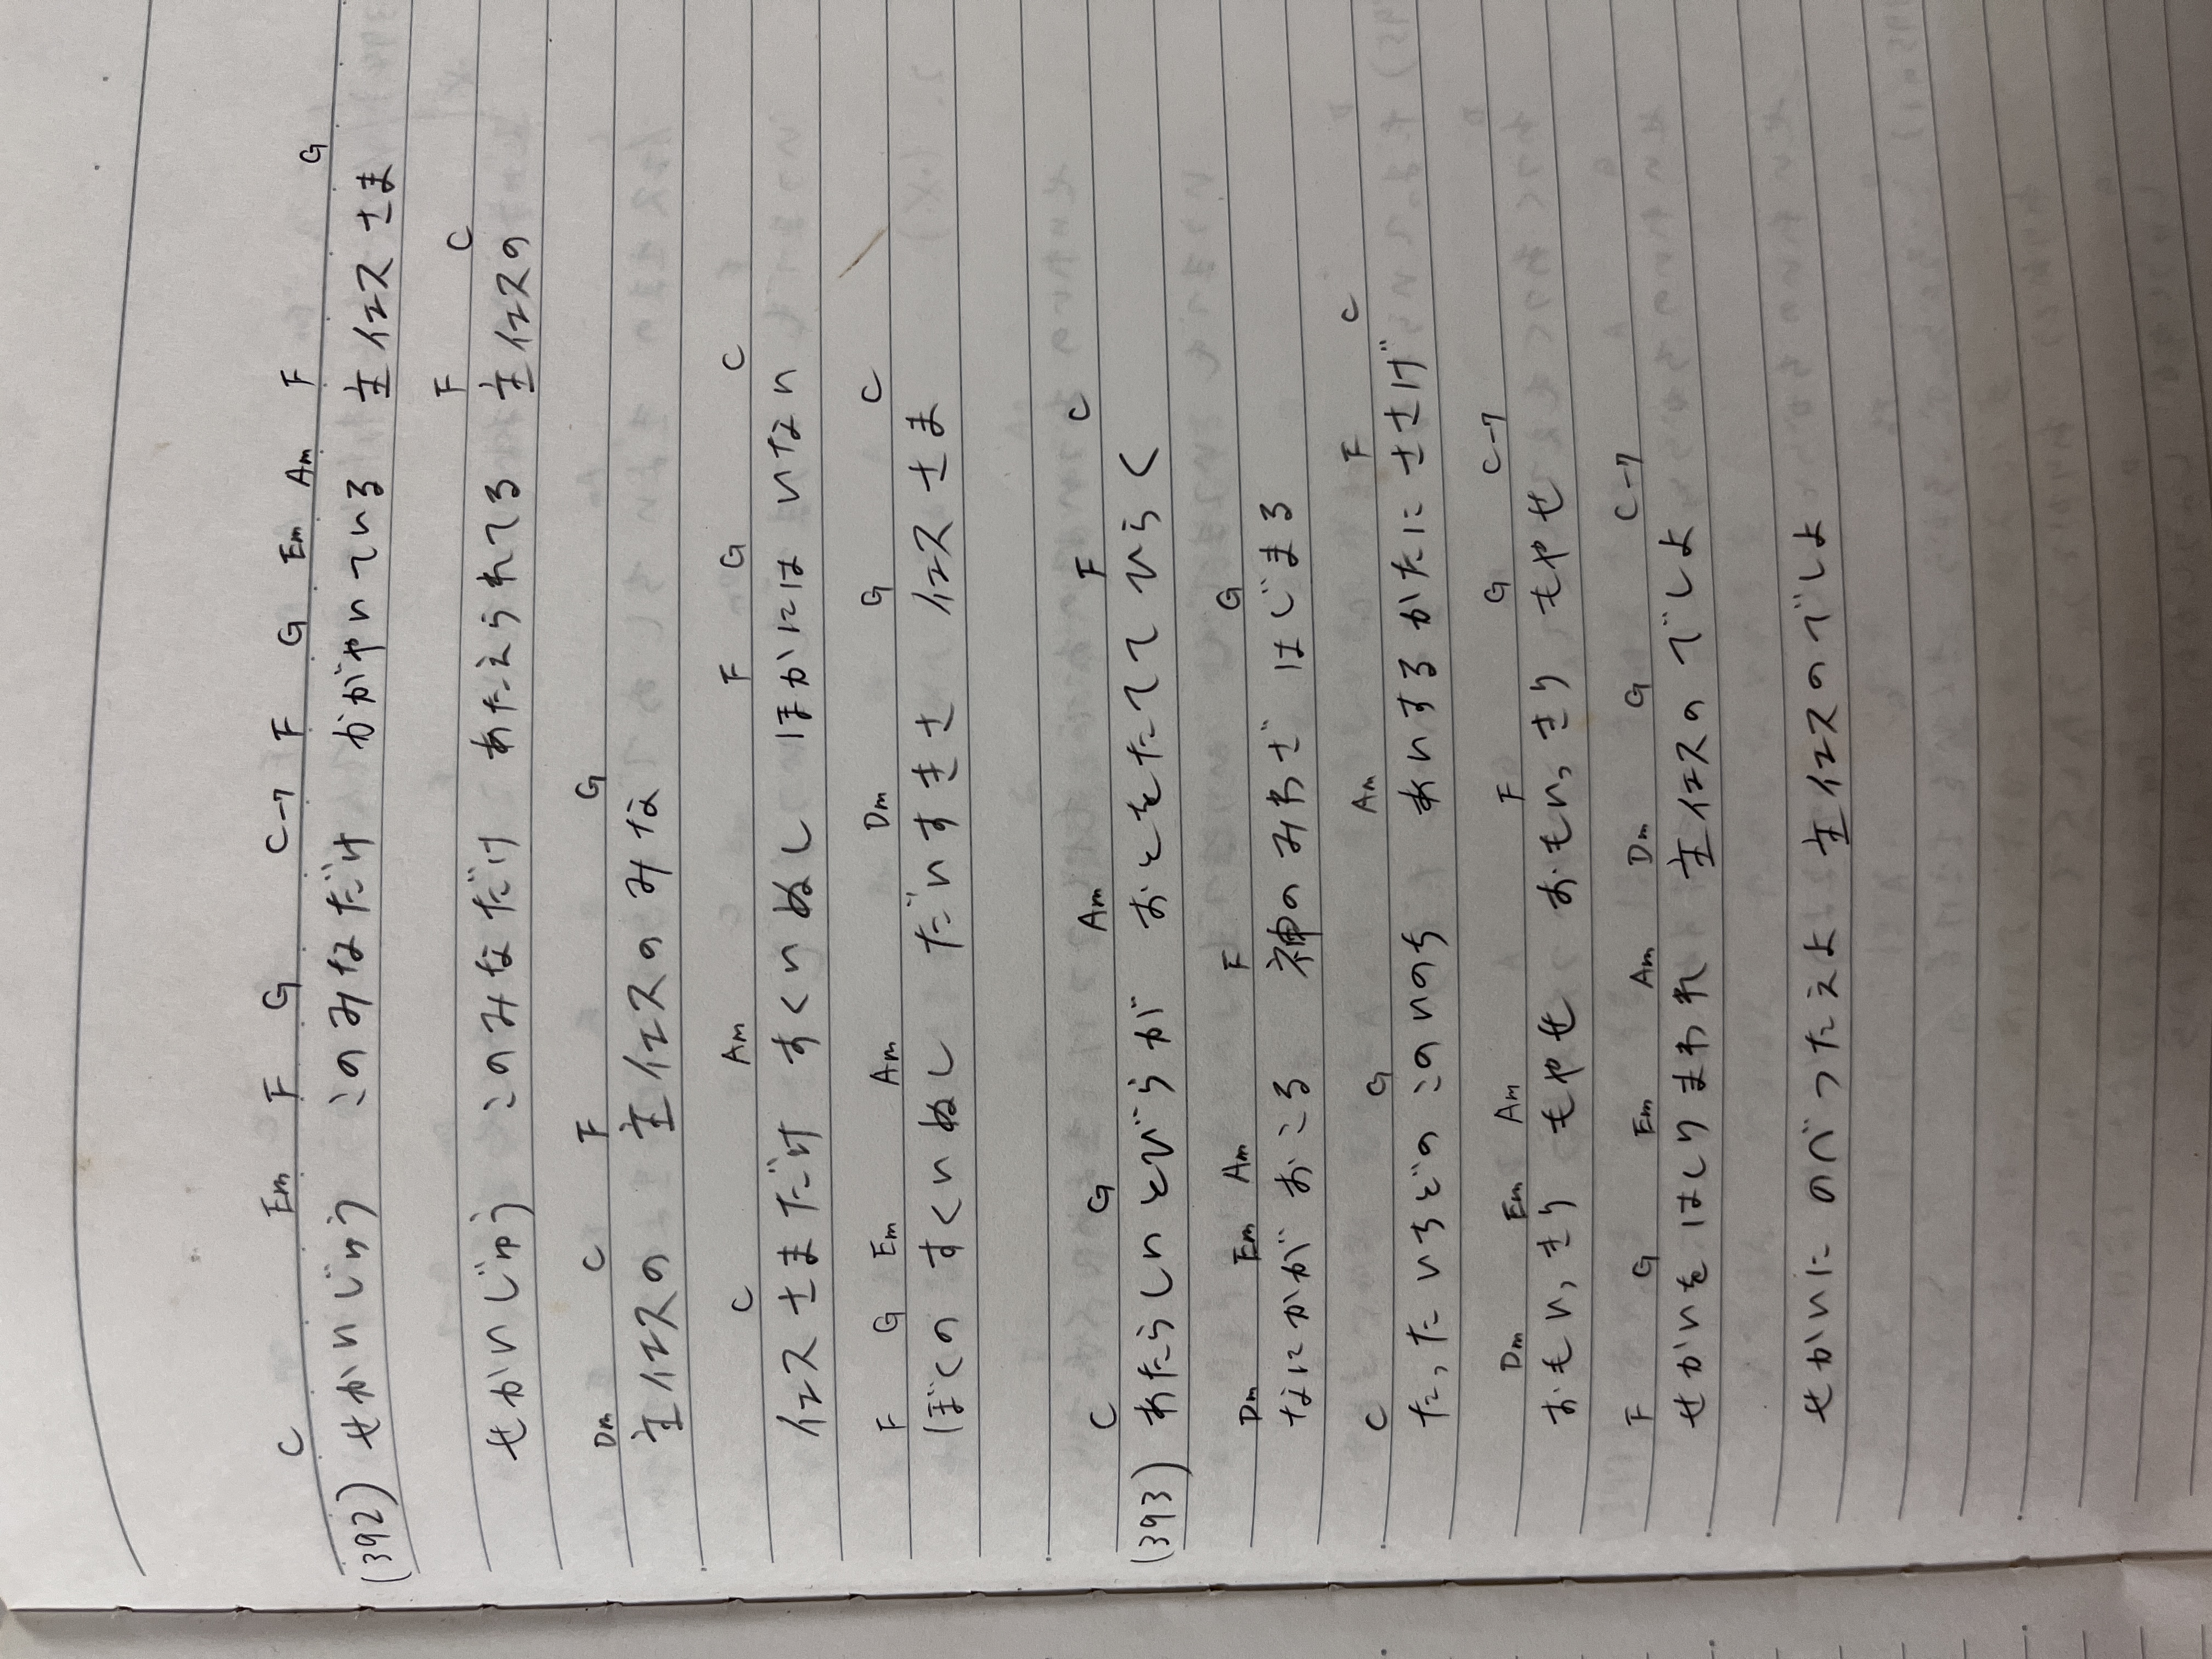 C Em F G C-7 F G Em Am F G
(392) せかいじゅう このみなだけ かがやいている 主イエスさま
F C
せかいじゅう このみなだけ あたえられてる 主イエスの
Dm C F G
主イエスの 主イエスのみな
C Am F G C
イエスさまだけ すくいぬし ほかにはいない
F G Em Am Dm G C
ぼくの すくいぬし だいすきさ イエスさま
C G Am F C
(393) あたらしいとびらが おとをたてて ひらく
Dm Em Am F G
なにかが おこる 神のみわざ はじまる
C G Am F C
たった いちどの このいのち あいするかたに ささげ
Dm Em Am F G C-7
おもいっきり もやせ おもいっきり もやせ
F G Em Am Dm G C-7
せかいを はしりまわれ 主イエスの でしよ
せかいに のべつたえよ 主イエスのでしよ